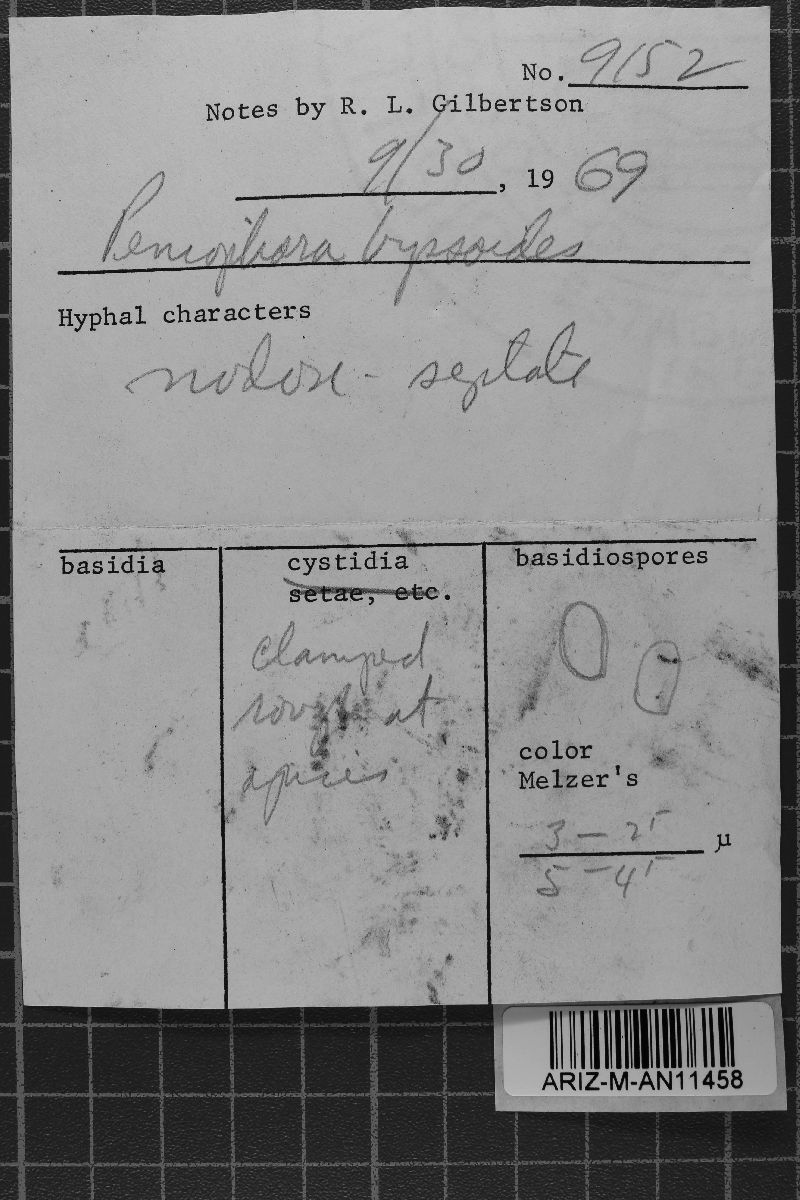 No. 9152
Notes by R. L. Gilbertson
9/30, 19 69
Peniophora byssoides
Hyphal characters
nodose - septate
basidia
cystidia
setae, etc.
clamped
rough at
apices
basidiospores
color
Melzer's
3 - 2
µ
5 - 4
ARIZ-M-AN11458